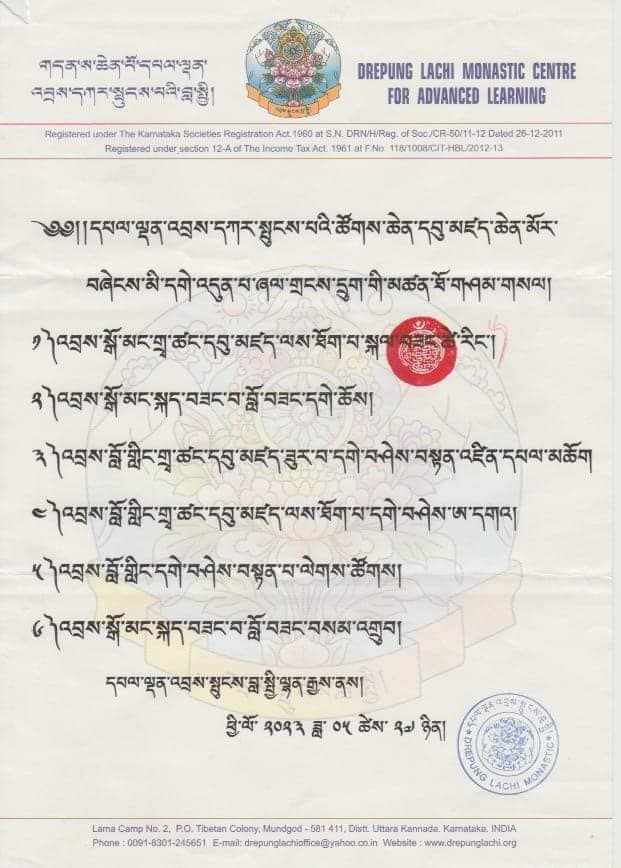 གདན་ས་ཆེན་པོ་དཔལ་ལྡན་
འབྲས་དཀར་སྤུངས་པའི་བླ་སྤྱི།
DREPUNG LACHI MONASTIC CENTRE
FOR ADVANCED LEARNING
Registered under The Karnataka Societies Registration Act.1960 at S.N. DRN/H/Reg. of Soc./CR-50/11-12 Dated 26-12-2011
Registered under section 12-A of The Income Tax Act. 1961 at F.No. 118/1008/CIT-HBL/2012-13
༄༅།།དཔལ་ལྡན་འབྲས་དཀར་སྤུངས་པའི་ཚོགས་ཆེན་དབུ་མཛད་ཆེན་མོར་
བཞེངས་མི་དགེ་འདུན་པ་ཞལ་གྲངས་དྲུག་གི་མཚན་ཐོ་གཤམ་གསལ།
༡༽འབྲས་སྒོ་མང་གྲྭ་ཚང་དབུ་མཛད་ལས་ཐོག་པ་སྐལ་བཟང་ཚེ་རིང་།
༢༽འབྲས་སྒོ་མང་སྐད་བཟང་བ་བློ་བཟང་དགེ་ཆོས།
༣༽འབྲས་བློ་གླིང་གྲྭ་ཚང་དབུ་མཛད་ཟུར་བ་དགེ་བཤེས་བསྟན་འཛིན་དཔལ་མཆོག
༤༽འབྲས་བློ་གླིང་གྲྭ་ཚང་དབུ་མཛད་ལས་ཐོག་པ་དགེ་བཤེས་ཨ་དགའ།
༥༽འབྲས་བློ་གླིང་དགེ་བཤེས་བསྟན་པ་ལེགས་ཚོགས།
༦༽འབྲས་སྒོ་མང་སྐད་བཟང་བ་བློ་བཟང་བསམ་འགྲུབ།
དཔལ་ལྡན་འབྲས་སྤུངས་བླ་སྤྱི་ལྷན་རྒྱས་ནས།
ཕྱི་ལོ་ ༢༠༢༣ ཟླ་ ༠༥ ཚེས་ ༢༧ ཉིན།
DREPUNG LACHI MONASTIC
Lama Camp No. 2, P.O. Tibetan Colony, Mundgod - 581 411, Distt. Uttara Kannada. Karnataka. INDIA
Phone : 0091-8301-245651 E-mail: drepunglachioffice@yahoo.co.in Website : www.drepunglachi.org